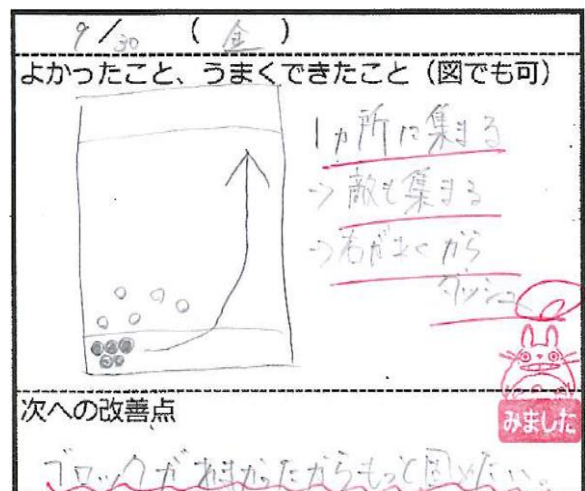 9/30 (金)
よかったこと、うまくできたこと(図でも可)
1ヵ所に集まる
→敵も集まる
→右があくから
ダッシュ
みました
次への改善点
ブロックがあまかったからもっと固めたい。